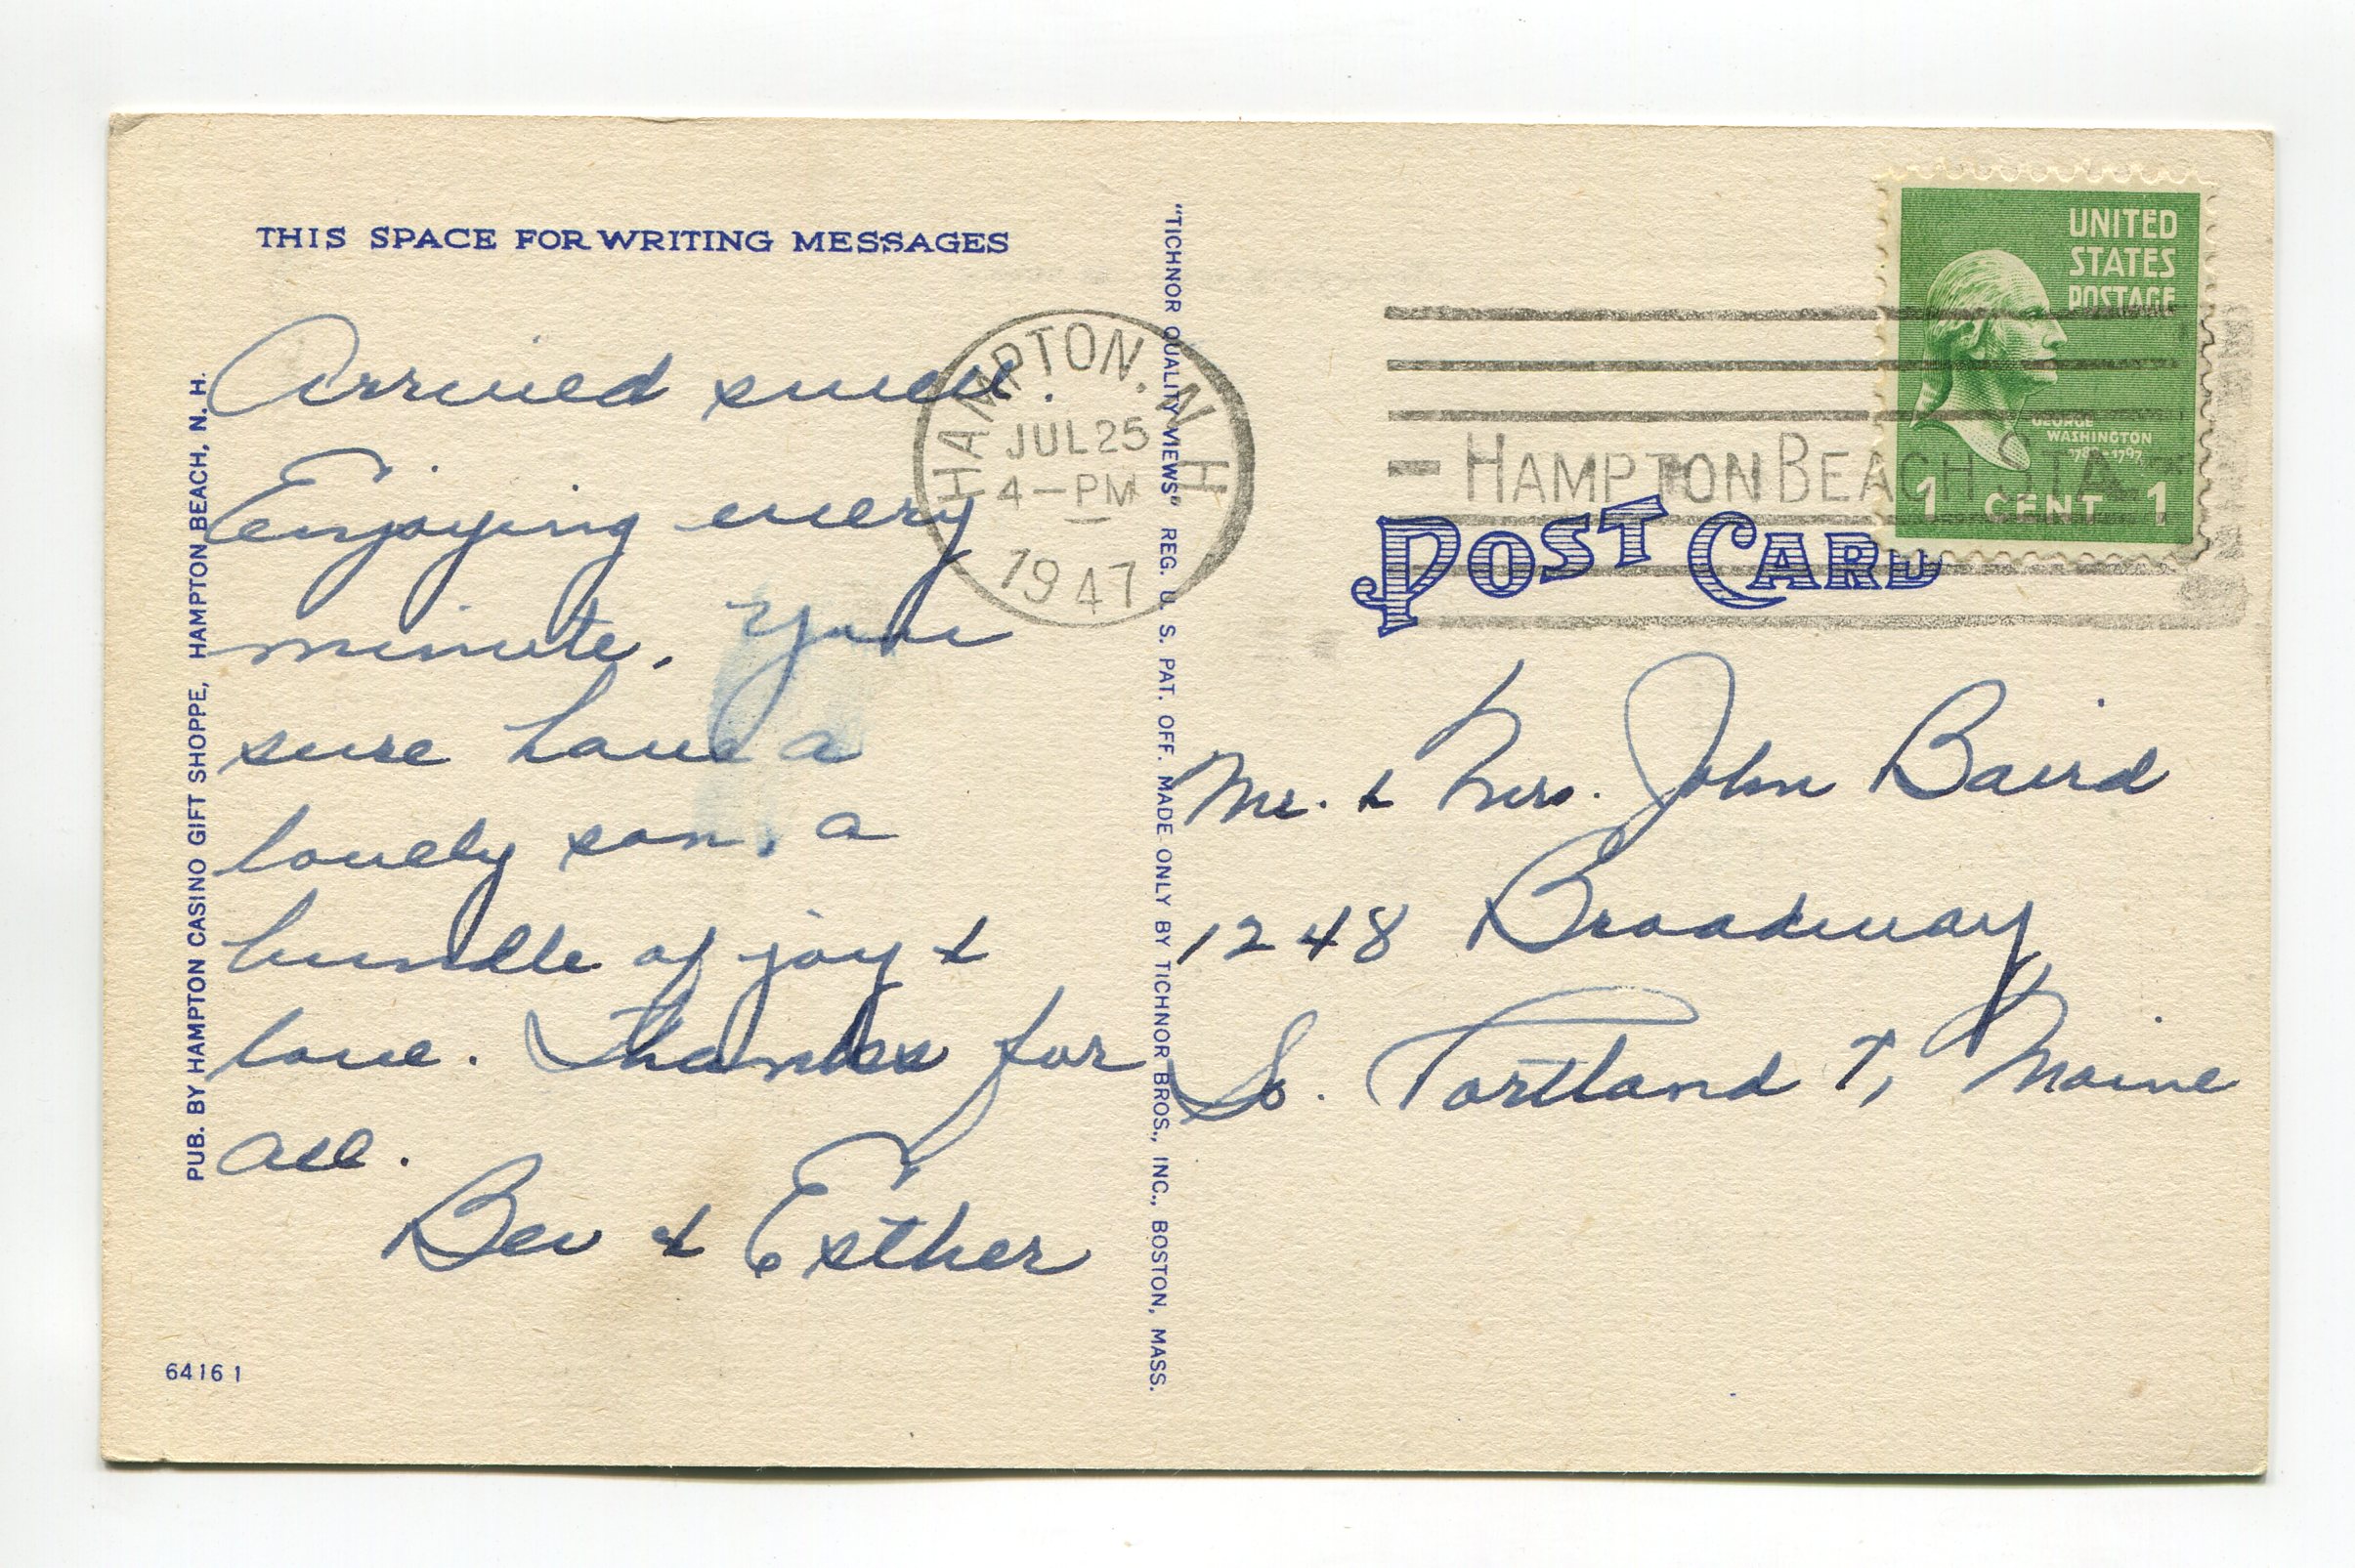 THIS SPACE FOR WRITING MESSAGES
Arrived swell.
Enjoying every
minute. You
sure have a
lovely son, a
bundle of joy &
love. Thanks for
all.
Bev & Esther
64161
PUB. BY HAMPTON CASINO GIFT SHOPPE, HAMPTON BEACH, N. H.
"TICHNOR QUALITY VIEWS" REG. U. S. PAT. OFF. MADE ONLY BY TICHNOR BROS., INC., BOSTON, MASS.
HAMPTON. N. H
JUL 25
4-PM
1947
HAMPTON BEACH STA.
UNITED
STATES
POSTAGE
GEORGE
WASHINGTON
1789-1797
1 CENT 1
POST CARD
Mr. & Mrs. John Baird
1248 Broadway
So. Portland 7, Maine